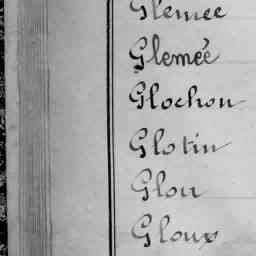 Glemée
Glemée
Glochon
Glotin
Glou
Gloux